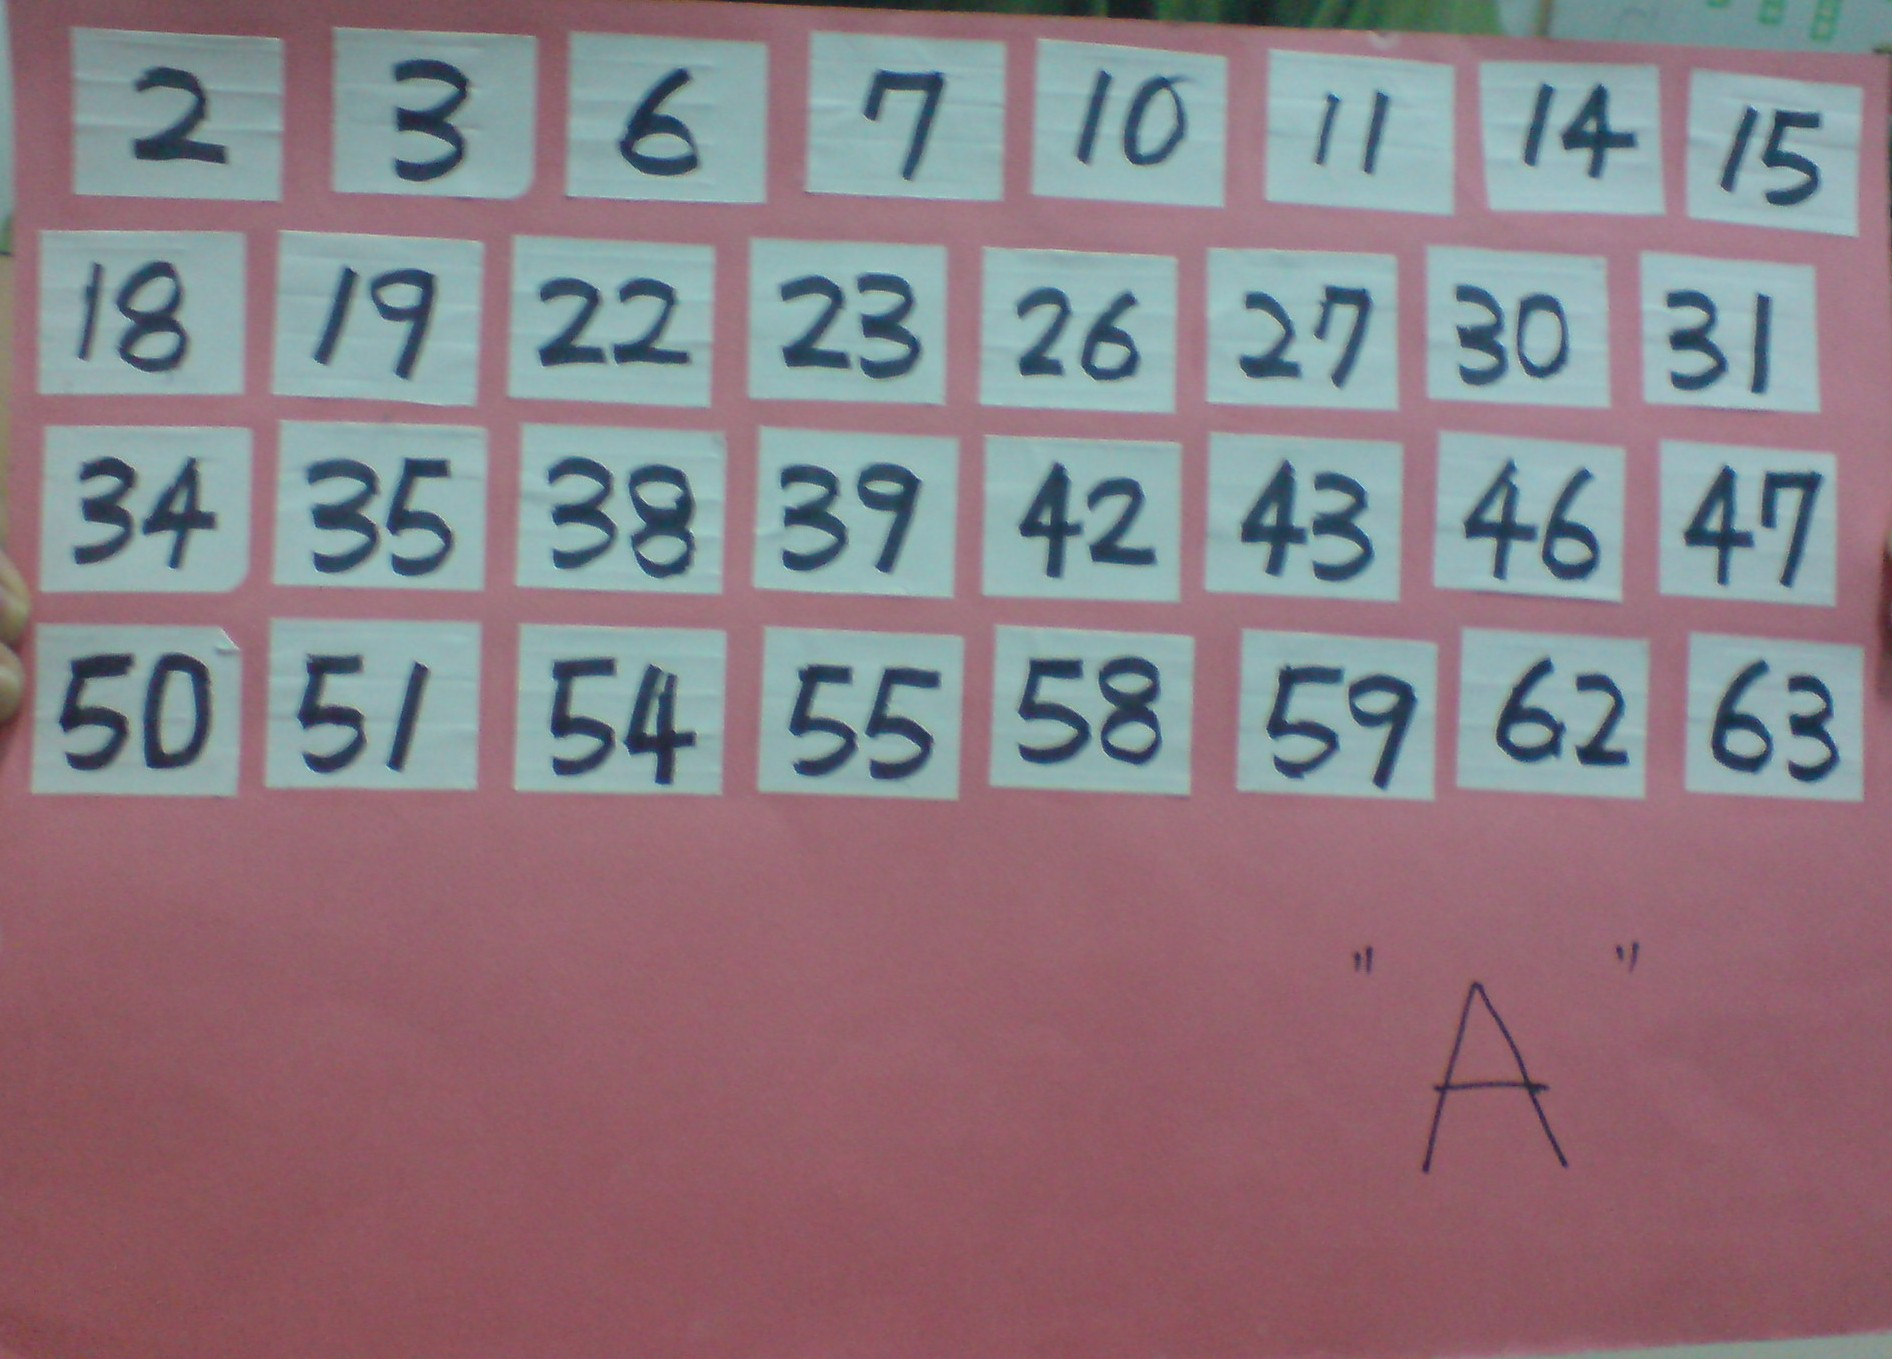 2 3 6 7 10 11 14 15
18 19 22 23 26 27 30 31
34 35 38 39 42 43 46 47
50 51 54 55 58 59 62 63
"A"